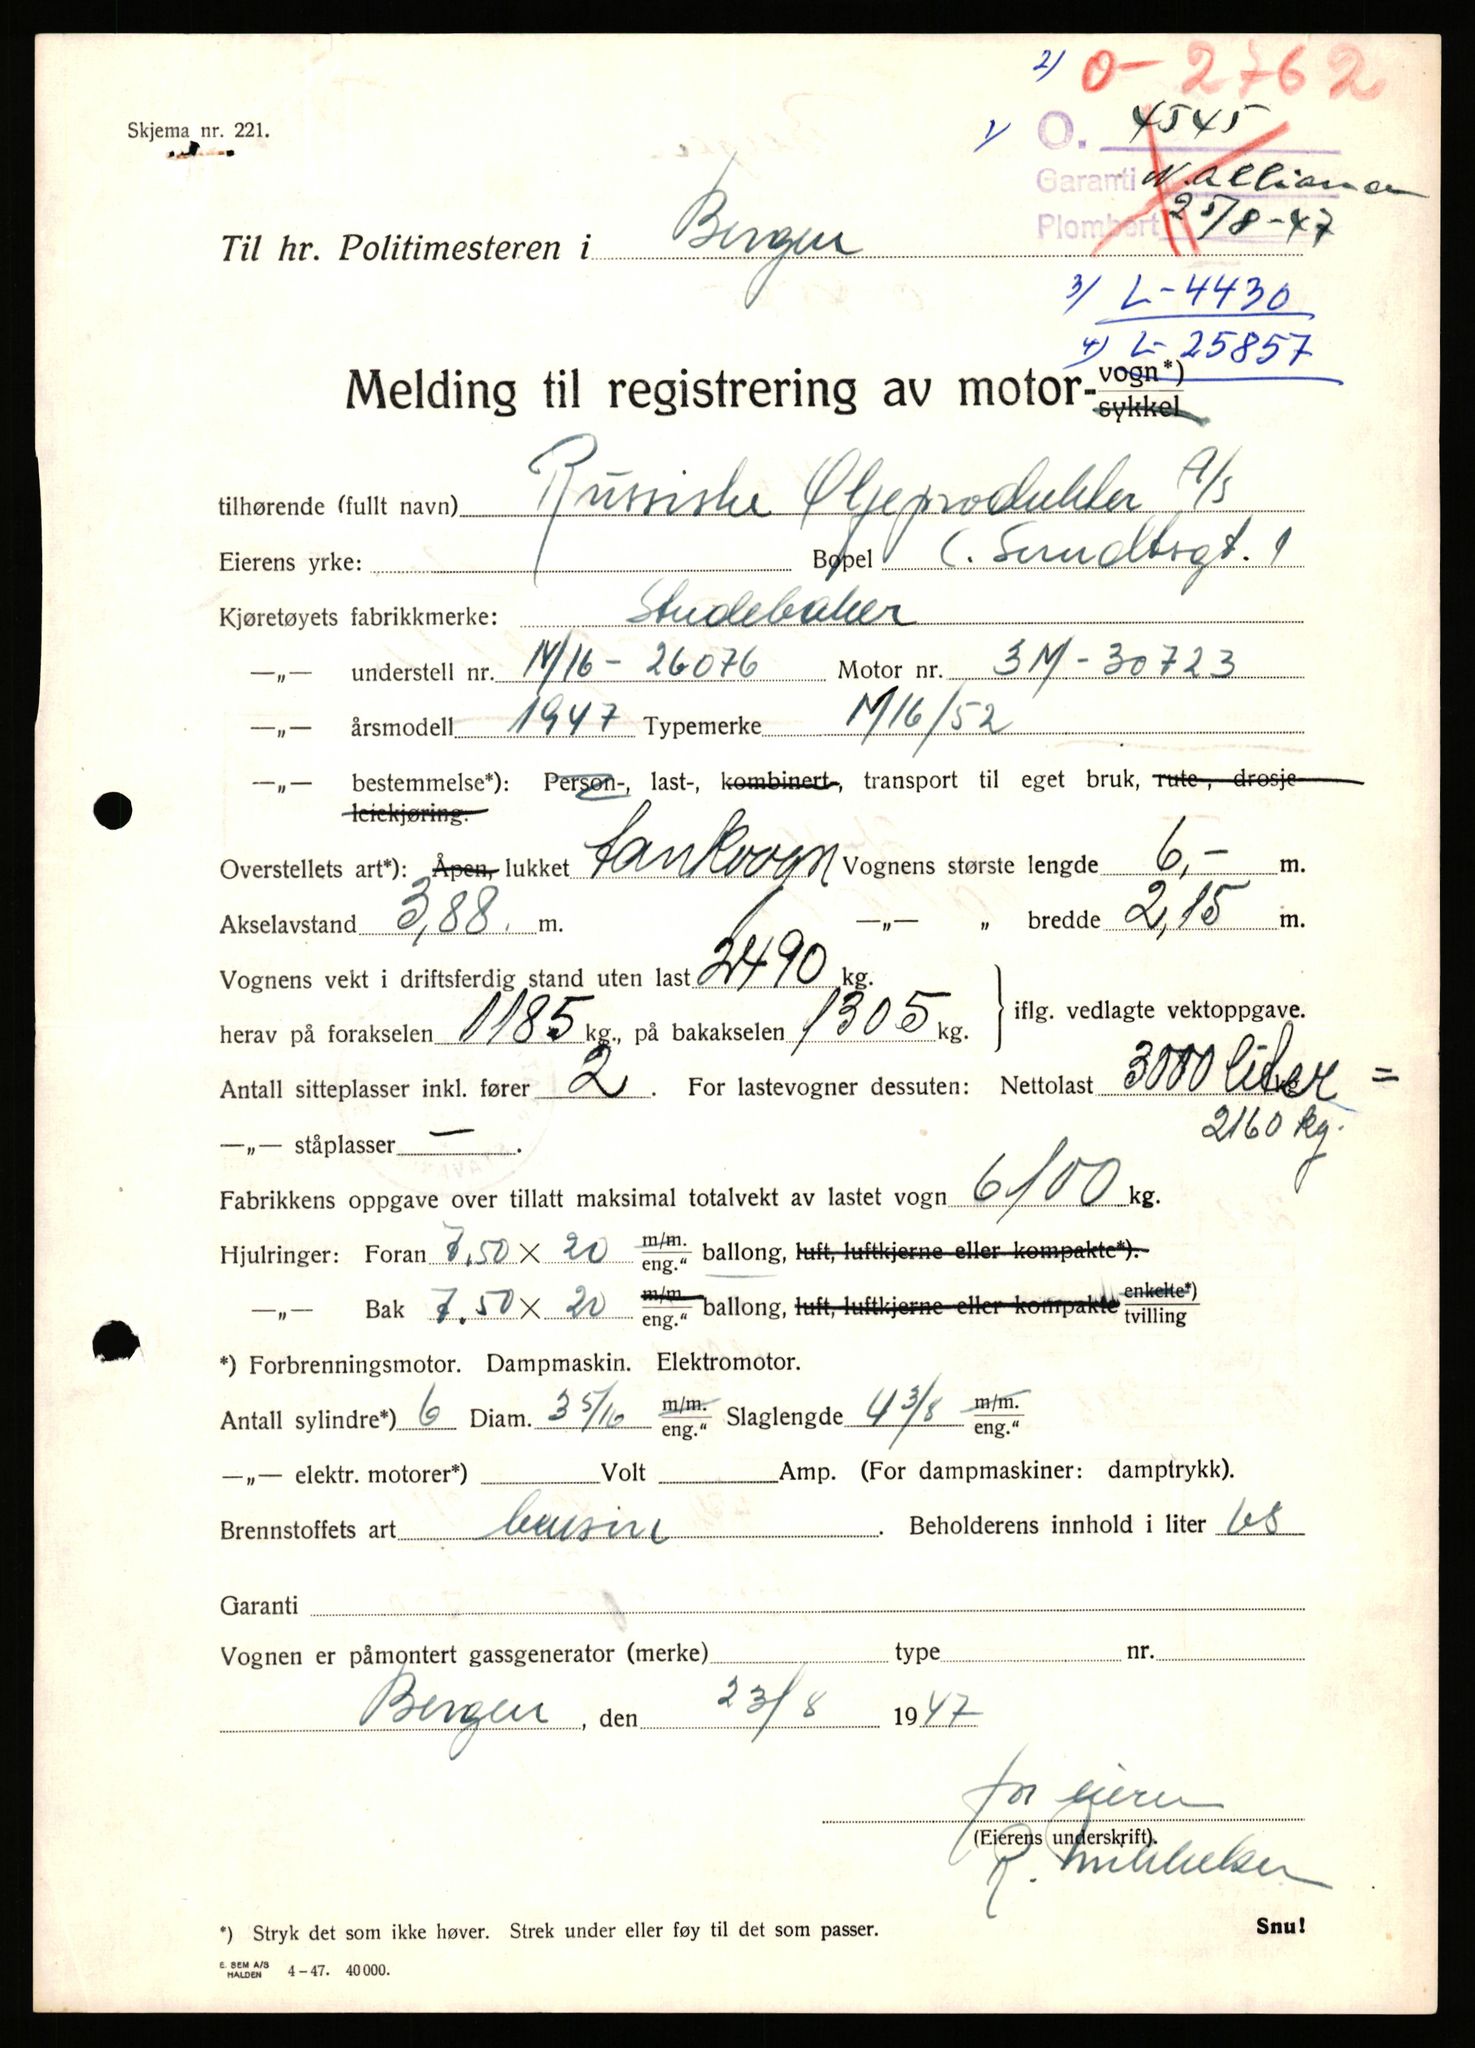 2) O-2762
Skjema nr. 221.
1) O. 4545
Garanti N. Alliance
Plombert 25/8-47
Til hr. Politimesteren i Bergen
3) L-4430
4) L-25857
Melding til registrering av motor- vogn*)
sykkel
tilhørende (fullt navn) Russiske Oljeprodukter A/S
Eierens yrke: Bopel C. Sundtsgt. 1
Kjøretøyets fabrikkmerke: Studebaker
—„— understell nr. M/16 - 26076 Motor nr. 3M-30723
—„— årsmodell 1947 Typemerke M16/52
—„— bestemmelse*): Person-, last-, kombinert-, transport til eget bruk, rute-, drosje-
leiekjøring.
Overstellets art*): Åpen, lukket tankvogn Vognens største lengde 6,- m.
Akselavstand 3,88 m. —„— „ bredde 2,15 m.
Vognens vekt i driftsferdig stand uten last 2490 kg.
herav på forakselen 1185 kg., på bakakselen 1305 kg. } iflg. vedlagte vektoppgave.
Antall sitteplasser inkl. fører 2. For lastevogner dessuten: Nettolast 3000 liter kg. =
2160 kg.
—„— ståplasser —.
Fabrikkens oppgave over tillatt maksimal totalvekt av lastet vogn 6100 kg.
Hjulringer: Foran 7.50 × 20 m/m. eng.“ ballong, luft, luftkjerne eller kompakte*).
—„— Bak 7.50 × 20 m/m. eng.“ ballong, luft, luftkjerne eller kompakte enkelte*) tvilling
*) Forbrenningsmotor. Dampmaskin. Elektromotor.
Antall sylindre*) 6 Diam. 3 5/16 m/m. eng.“ Slaglengde 4 3/8 m/m. eng.“
—„— elektr. motorer*) Volt Amp. (For dampmaskiner: damptrykk).
Brennstoffets art bensin. Beholderens innhold i liter 68
Garanti
Vognen er påmontert gassgenerator (merke) type nr.
Bergen, den 23/8 1947
for eieren
(Eierens underskrift).
R. Mikkelsen
*) Stryk det som ikke høver. Strek under eller føy til det som passer. Snu!
E. SEM A/S
HALDEN 4-47. 40 000.